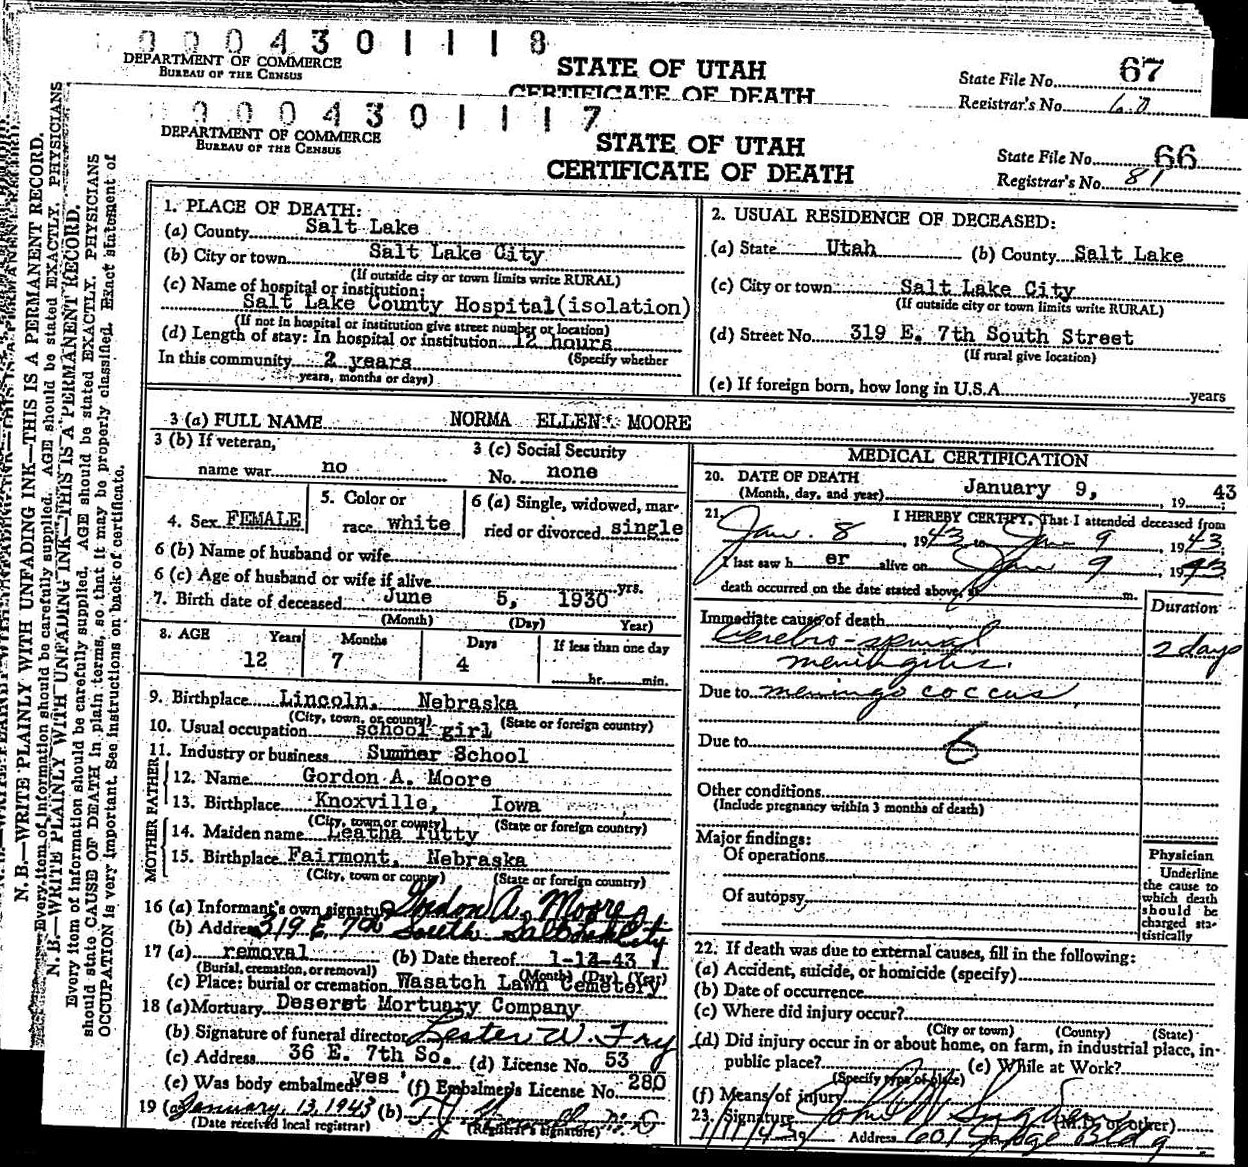 0 0 0 4 3 0 1 1 1 8
DEPARTMENT OF COMMERCE
BUREAU OF THE CENSUS
STATE OF UTAH
CERTIFICATE OF DEATH
State File No. 67
Registrar's No.
0 0 0 4 3 0 1 1 1 7
DEPARTMENT OF COMMERCE
BUREAU OF THE CENSUS
STATE OF UTAH
CERTIFICATE OF DEATH
State File No. 66
Registrar's No. 81
N. B.—WRITE PLAINLY WITH UNFADING INK—THIS IS A PERMANENT RECORD.
Every item of information should be carefully supplied. AGE should be stated EXACTLY. PHYSICIANS
N. B.—WRITE PLAINLY WITH UNFADING INK—THIS IS A PERMANENT RECORD.
Every item of information should be carefully supplied. AGE should be stated EXACTLY. PHYSICIANS
should state CAUSE OF DEATH in plain terms, so that it may be properly classified. Exact statement of
OCCUPATION is very important. See instructions on back of certificate.
1. PLACE OF DEATH:
(a) County Salt Lake
(b) City or town Salt Lake City
(If outside city or town limits write RURAL)
(c) Name of hospital or institution:
Salt Lake County Hospital(isolation)
(If not in hospital or institution give street number or location)
(d) Length of stay: In hospital or institution 12 hours
In this community 2 years (Specify whether
years, months or days)
2. USUAL RESIDENCE OF DECEASED:
(a) State Utah (b) County Salt Lake
(c) City or town Salt Lake City
(If outside city or town limits write RURAL)
(d) Street No. 319 E. 7th South Street
(If rural give location)
(e) If foreign born, how long in U.S.A. years
3 (a) FULL NAME NORMA ELLEN MOORE
3 (b) If veteran,
name war no
3 (c) Social Security
No. none
4. Sex FEMALE
5. Color or
race white
6 (a) Single, widowed, mar-
ried or divorced single
6 (b) Name of husband or wife
6 (c) Age of husband or wife if alive yrs.
7. Birth date of deceased June 5, 1930
(Month) (Day) Year)
8. AGE Years Months Days If less than one day
12 7 4 hr. min.
9. Birthplace Lincoln, Nebraska
(City, town, or county) (State or foreign country)
10. Usual occupation school girl
11. Industry or business Sumner School
FATHER
12. Name Gordon A. Moore
13. Birthplace Knoxville, Iowa
(City, town or county) (State or foreign country)
MOTHER
14. Maiden name Leatha Tutty
15. Birthplace Fairmont, Nebraska
(City, town or county) (State or foreign country)
16 (a) Informant's own signature Gordon A. Moore
(b) Address 319 E 7th South Salt Lake City
17 (a) removal (b) Date thereof 1-12-43
(Burial, cremation, or removal) (Month) (Day) (Year)
(c) Place: burial or cremation Wasatch Lawn Cemetery
18 (a) Mortuary Deseret Mortuary Company
(b) Signature of funeral director Lester W. Fry
(c) Address 36 E. 7th So. (d) License No. 53
(e) Was body embalmed yes (f) Embalmer's License No. 280
19 (a) January, 13, 1943 (b)
(Date received local registrar) (Registrar's signature)
MEDICAL CERTIFICATION
20. DATE OF DEATH
(Month, day, and year) January 9, 19 43
21. I HEREBY CERTIFY, That I attended deceased from
Jan. 8 1943 to Jan 9 , 1943.
I last saw h er alive on Jan 9 , 1943
death occurred on the date stated above, at m.
Duration
Immediate cause of death
Cerebro-spinal
meningitis. 2 days
Due to meningococcus
Due to
6
Other conditions
(Include pregnancy within 3 months of death)
Major findings:
Of operations
Of autopsy
Physician
Underline
the cause to
which death
should be
charged sta-
tistically
22. If death was due to external causes, fill in the following:
(a) Accident, suicide, or homicide (specify)
(b) Date of occurrence
(c) Where did injury occur?
(City or town) (County) (State)
(d) Did injury occur in or about home, on farm, in industrial place, in-
public place? (e) While at Work?
(Specify type of place)
(f) Means of injury
23. Signature John (M.D. or other)
1/11/43 19 Address 601 Judge Bldg